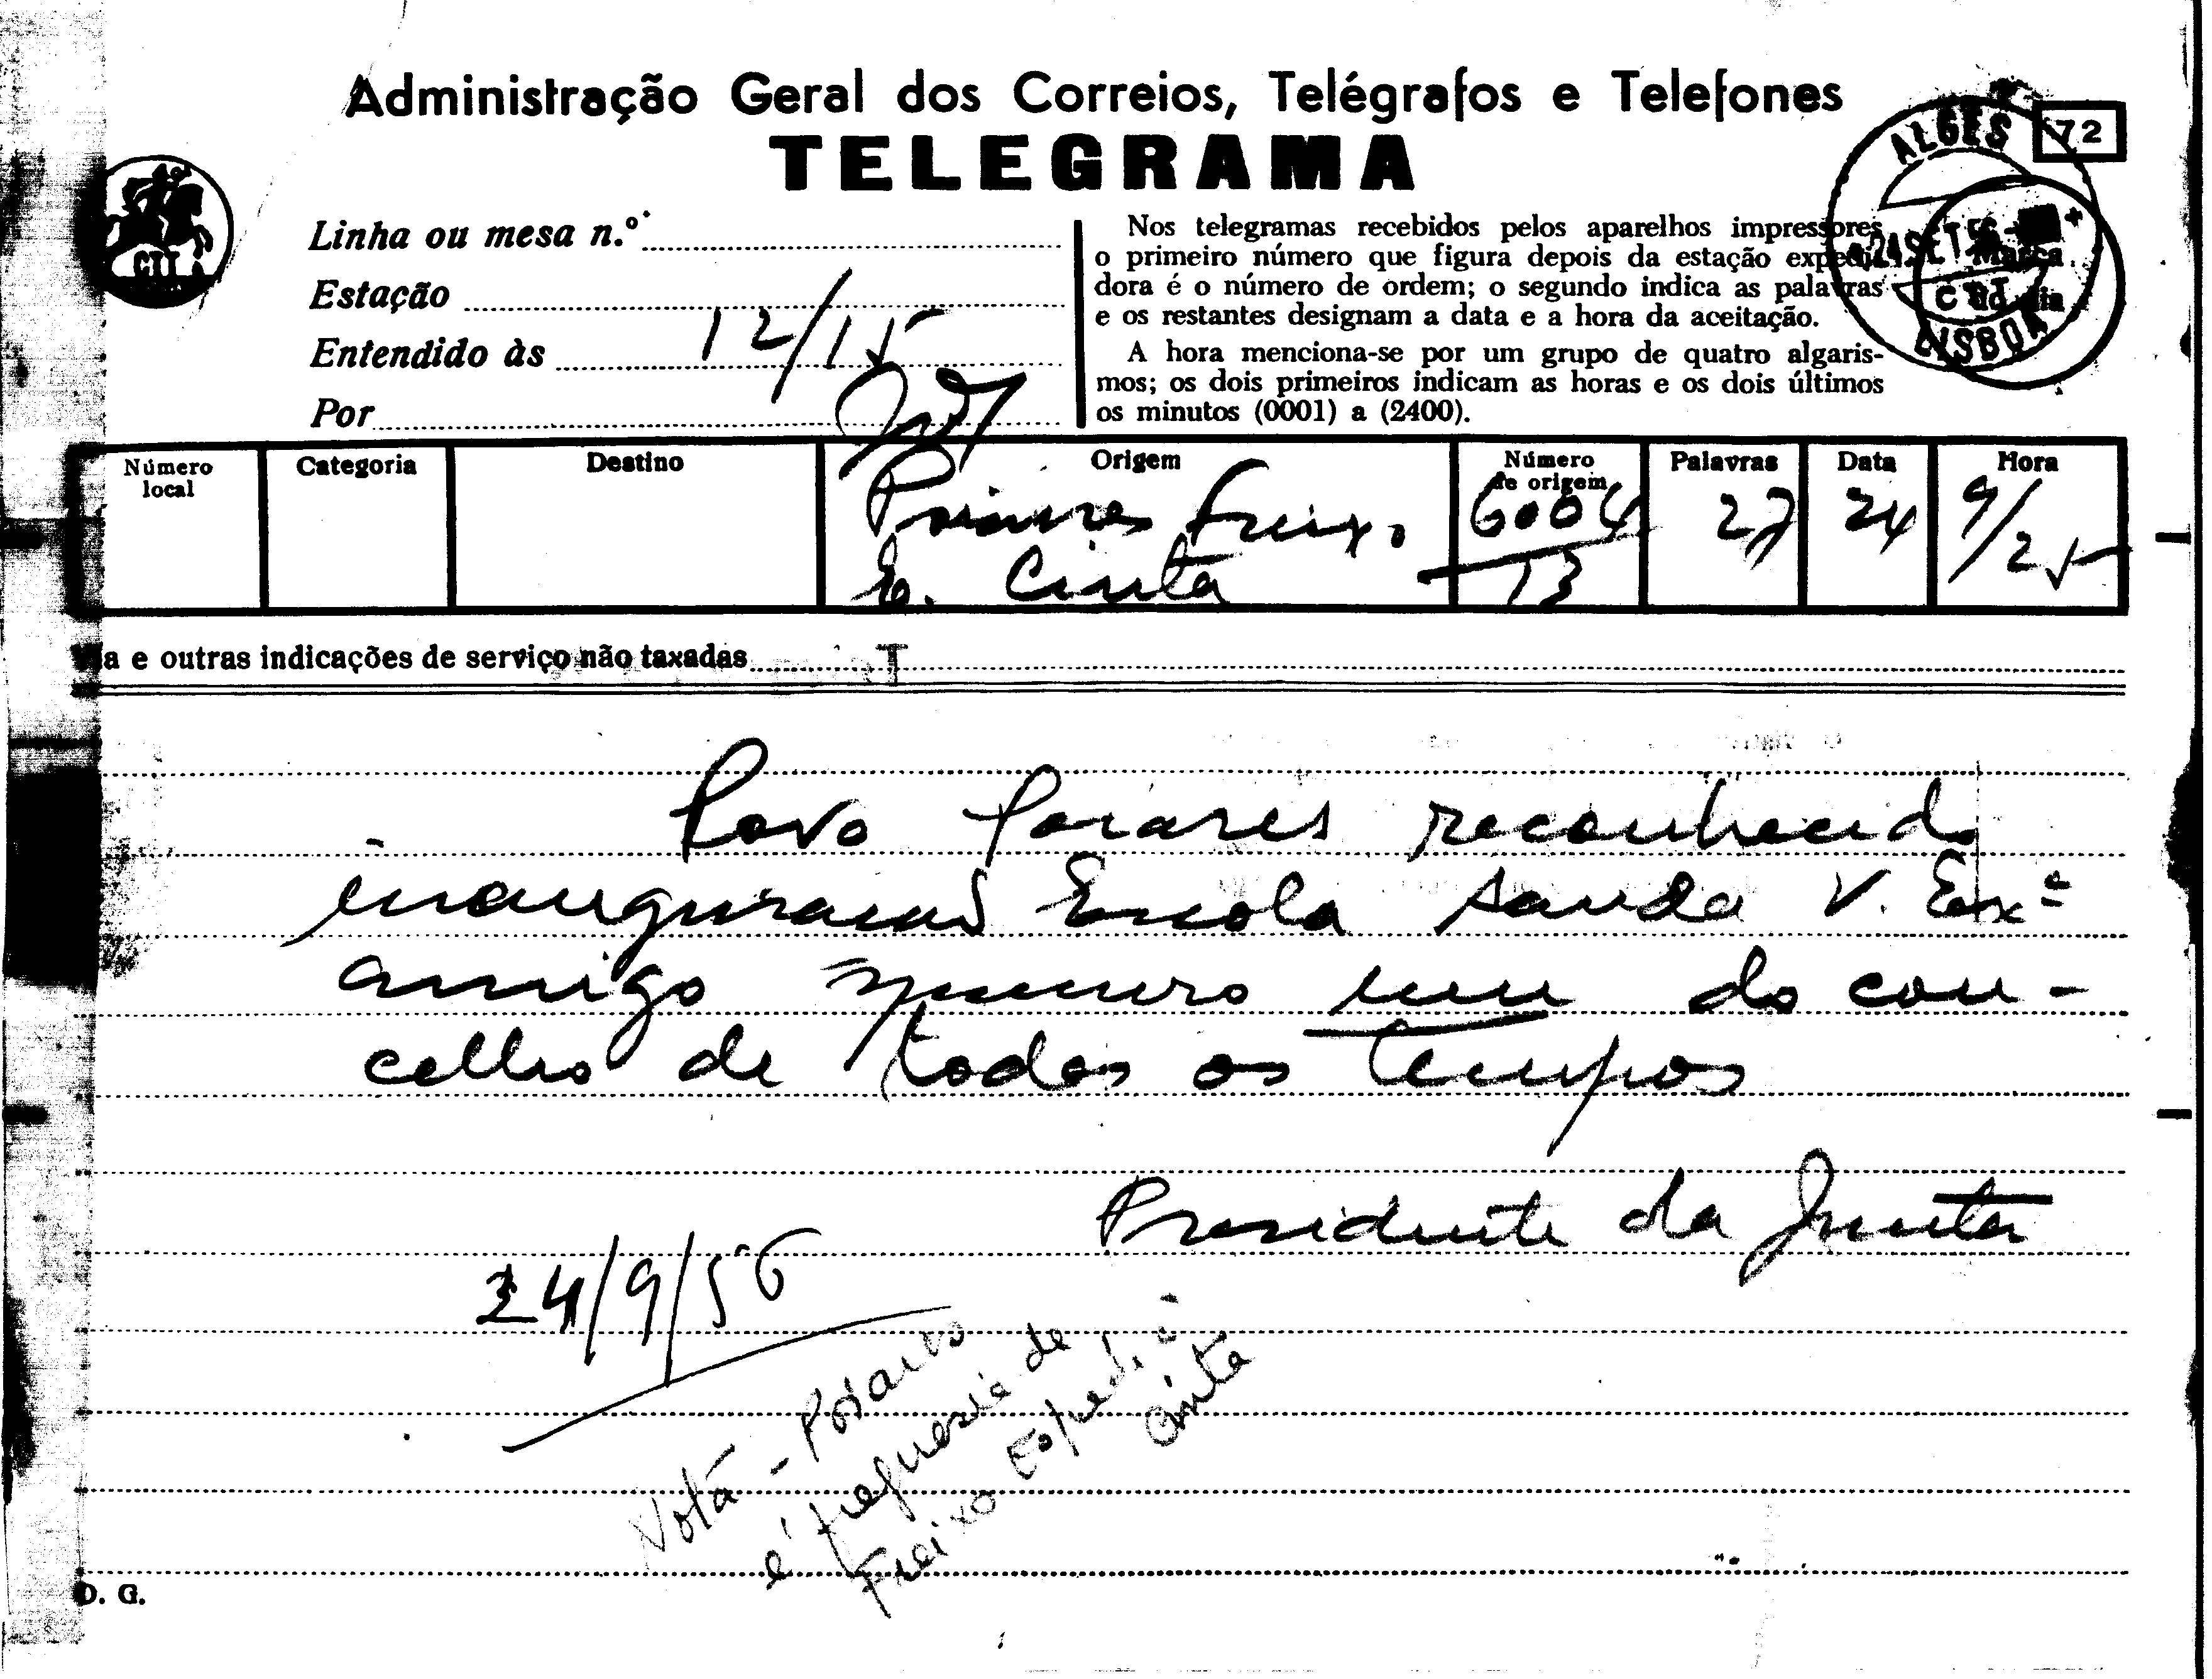 Administração Geral dos Correios, Telégrafos e Telefones
TELEGRAMA
ALGÉS
72
CTT
Linha ou mesa n.º
Estação
Entendido às 12/15
Por
Nos telegramas recebidos pelos aparelhos impressores
o primeiro número que figura depois da estação expedi-
dora é o número de ordem; o segundo indica as palavras
e os restantes designam a data e a hora da aceitação.
A hora menciona-se por um grupo de quatro algaris-
mos; os dois primeiros indicam as horas e os dois últimos
os minutos (0001) a (2400).
24 SET 56
Marca
do dia
LISBOA
Número local
Categoria
Destino
Origem
Número de origem
Palavras
Data
Hora
Poiares Freixo
E. Cinta
6004
13
27
24
9/25
Via e outras indicações de serviço não taxadas
Povo Poiares reconhecido
inauguracao Escola sauda V. Exª
amigo numero um do con-
celho de todos os tempos
Presidente da Junta
24/9/56
Nota - Poiares
é freguesia de
Freixo Espada à
Cinta
D. G.